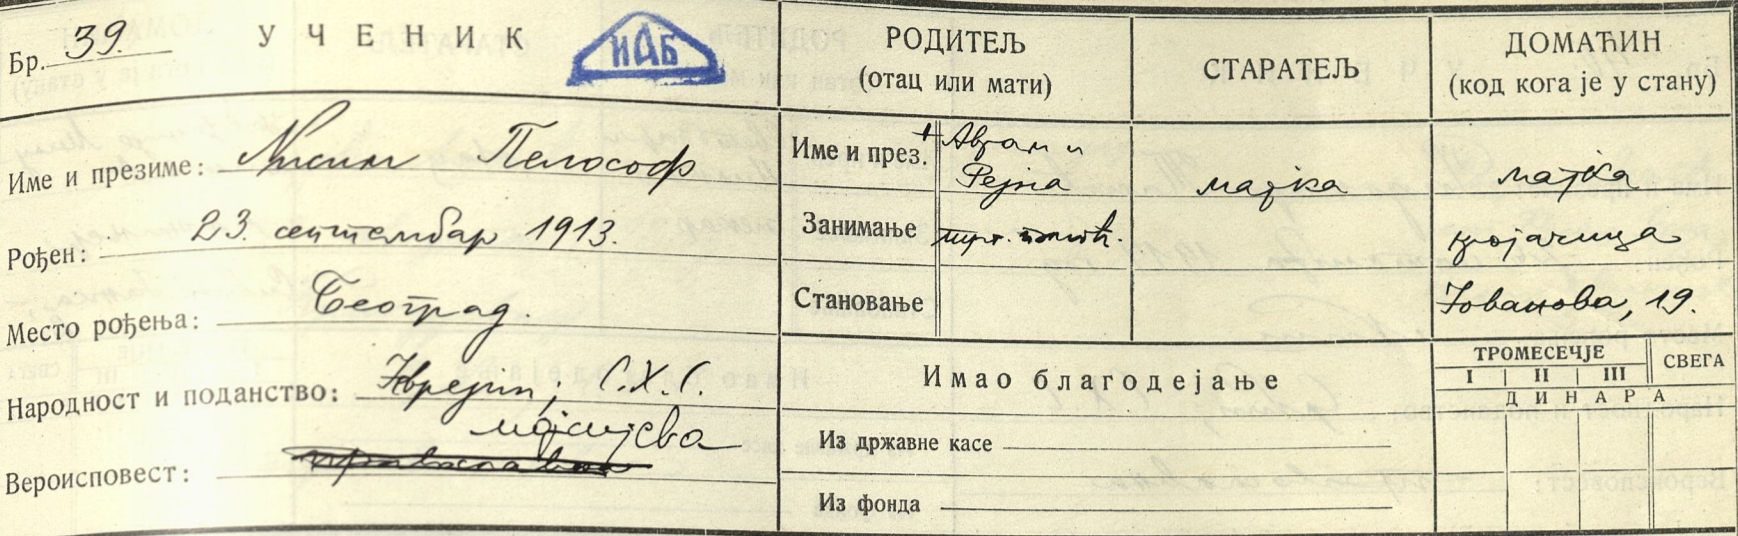 Бр. 39.
УЧЕНИК
ИАБ
Име и презиме: Нисим Пелософ
Рођен: 23. септембар 1913.
Место рођења: Београд.
Народност и поданство: Јеврејин; С.Х.С.
мојсијева
Вероисповест: православна
РОДИТЕЉ
(отац или мати)
СТАРАТЕЉ
ДОМАЋИН
(код кога је у стану)
Име и през. + Аврам и
Рејна
мајка
мајка
Занимање трг. помоћ.
кројачица
Становање
Јованова, 19.
Имао благодејање
ТРОМЕСЕЧЈЕ
СВЕГА
I II III
ДИНАРА
Из државне касе
Из фонда